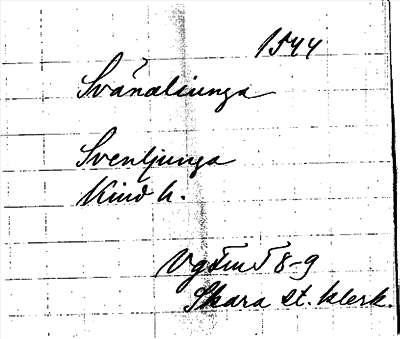 1544
Svändiunga
Svenljunga
Kind h.
VgFmT 8-9
Skara st. klerk.